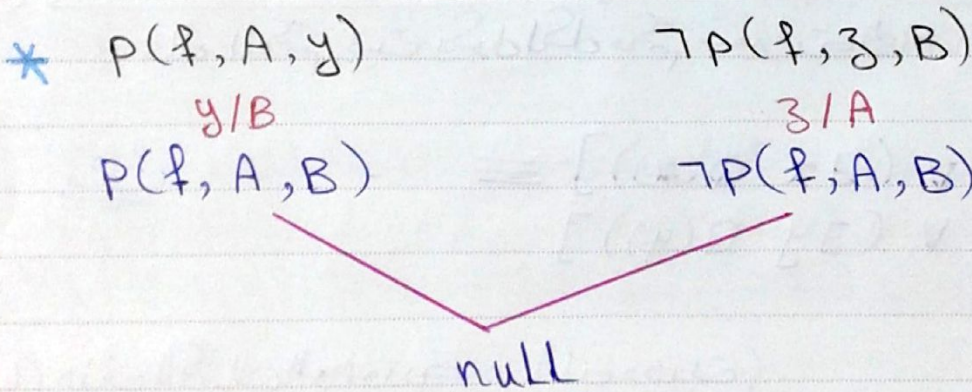 * p(f, A, y) ¬p(f, z, B)
y/B z/A
p(f, A, B) ¬p(f, A, B)
null